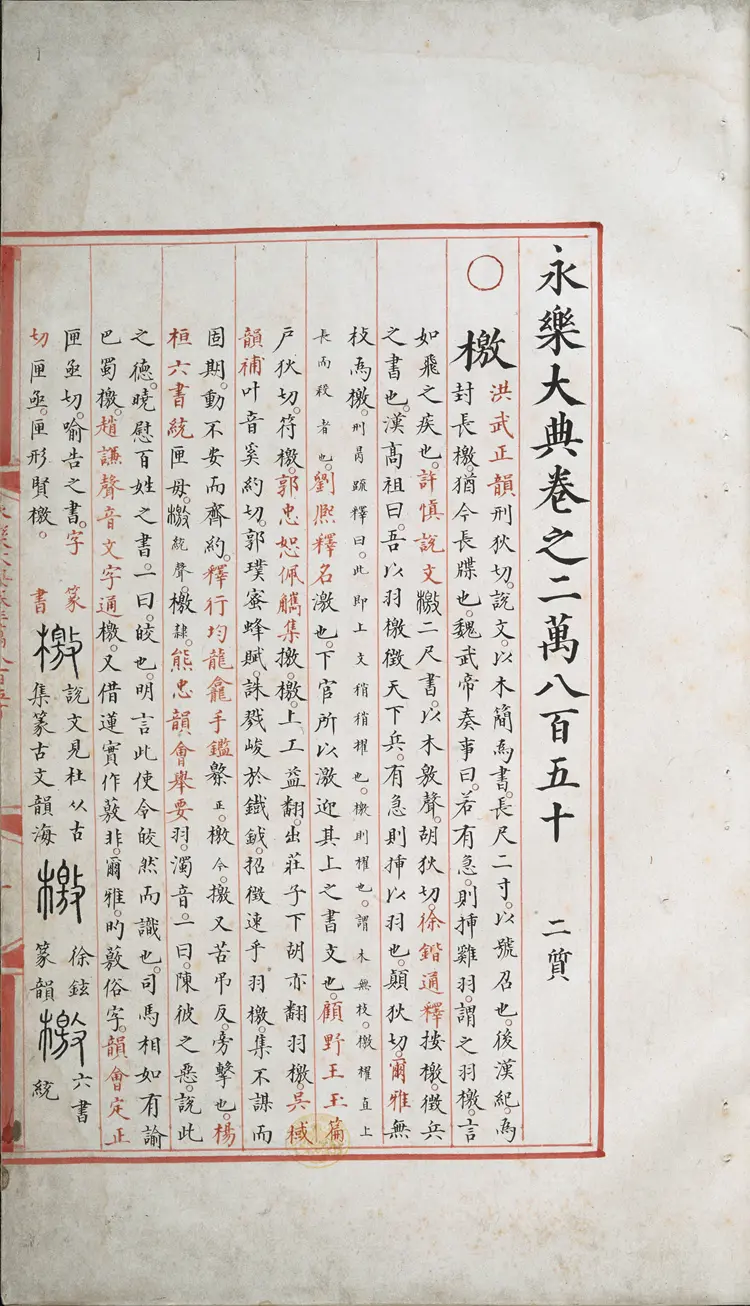 永樂大典卷之二萬八百五十　二質
○檄
洪武正韻刑狄切。說文。以木簡爲書。長尺二寸。以號召也。後漢紀。爲
封長檄。猶今長牒也。魏武帝奏事曰。若有急。則揷雞羽。謂之羽檄。言
如飛之疾也。許愼說文檄二尺書。以木敫聲。胡狄切。徐鍇通釋按檄。徵兵
之書也。漢高祖曰。吾以羽檄徵天下兵。有急則揷以羽也。顛狄切。爾雅無
枝爲檄。刑昺䟽釋曰。此即上文稍稍櫂也。檄則櫂也。謂木無枝。檄櫂直上
長而殺者也。劉熈釋名激也。下官所以激迎其上之書文也。顧野王玉篇
戸狄切。符檄。郭忠恕佩觿集撽。檄。上工益翻。出莊子下胡亦翻羽檄。吳棫
韻補叶音奚約切。郭璞蜜蜂賦。誅戮峻於鐵鉞。招徵速乎羽檄。集不謀而
固期。動不安而齊約。釋行均龍龕手鑑檠正。檄今。撽又苦吊反。旁擊也。楊
桓六書統匣母。檄統聲。檄隸。熊忠韻會舉要羽。濁音。一曰。陳彼之惡。說此
之德。曉慰百姓之書。一曰。皎也。明言此使令皎然而識也。司馬相如有諭
巴蜀檄。趙謙聲音文字通檄。又借蓮實作薂。非。爾雅。的薂俗字。韻會定正
匣亟切。喻告之書。字
切匣亟。匣形賢檄。
篆
書
檄
說文見杜从古
集篆古文韻海
檄
徐鉉
篆韻
檄
六書
統